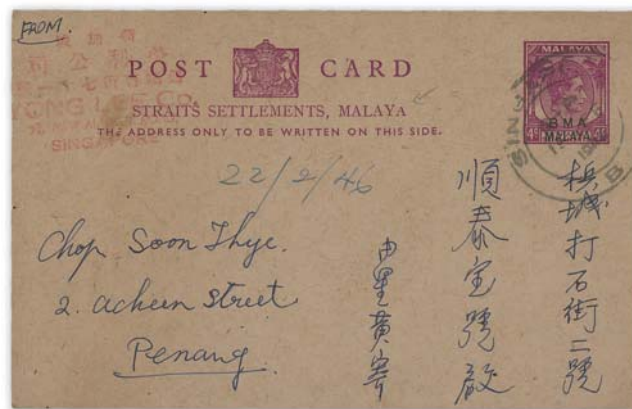 FROM.
YONG LEE CO.
SINGAPORE
POST CARD
STRAITS SETTLEMENTS, MALAYA
THE ADDRESS ONLY TO BE WRITTEN ON THIS SIDE.
MALAYA
BMA
MALAYA
SINGAPORE
B
22/2/46
Chop Soon Thye.
2. acheen street
Penang.
檳城打石街二號
順泰宝號啟
由星黄寄